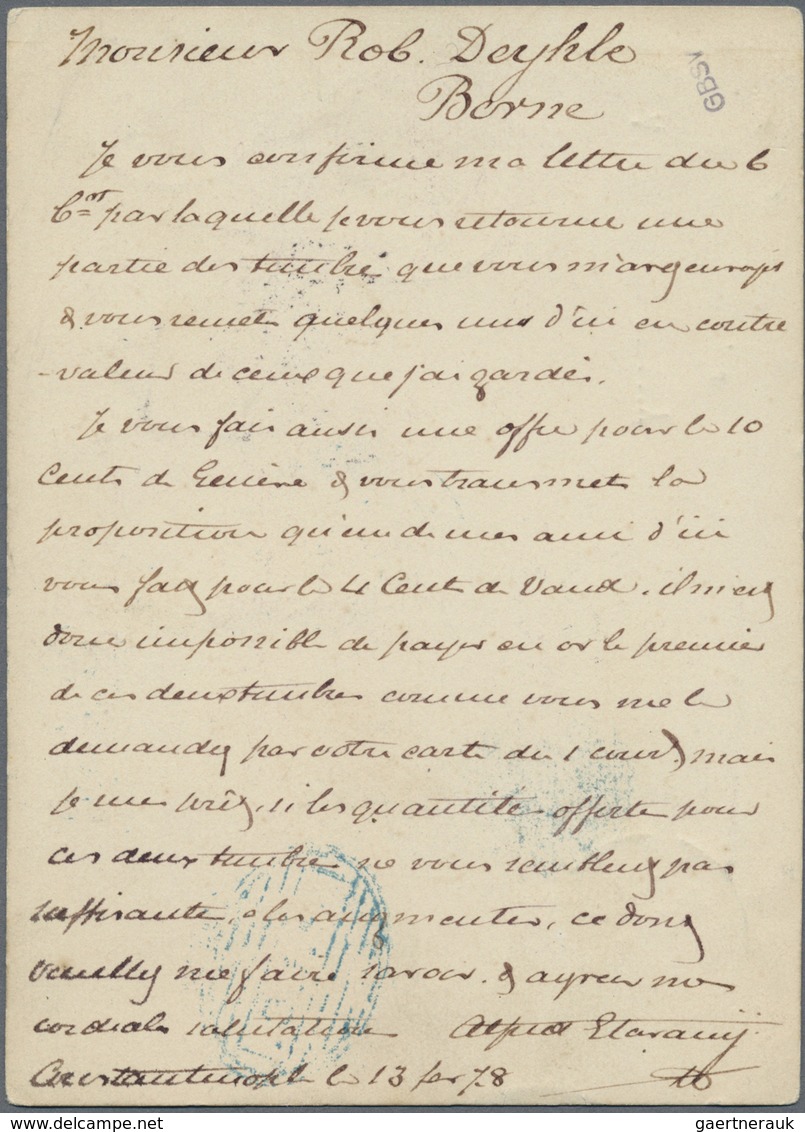 Monsieur Rob. Deyhle
GBSV
Berne
Je vous confirme ma lettre du 6
Ct par laquelle je vous retourne une
partie des timbres que vous m'avez envoyés
& vous remets quelques uns d'ici en contre
-valeur de ceux que j'ai gardés.
Je vous fais aussi une offre pour le 10
Cents de Genève & vous transmets la
proposition qu'un de mes amis d'ici
vous fait pour le 4 Cents de Vaud. il m'est
donc impossible de payer en or le premier
de ces deux timbres comme vous me le
demandez par votre carte du 1 cour) mais
je suis prêt, si les quantités offertes pour
ces deux timbres ne vous semblent pas
suffisantes, à les augmenter, ce dont
veuillez me faire savoir. & agréer mes
cordiales salutations Alfred
Constantinople le 13 fer 78
gaertnerauk